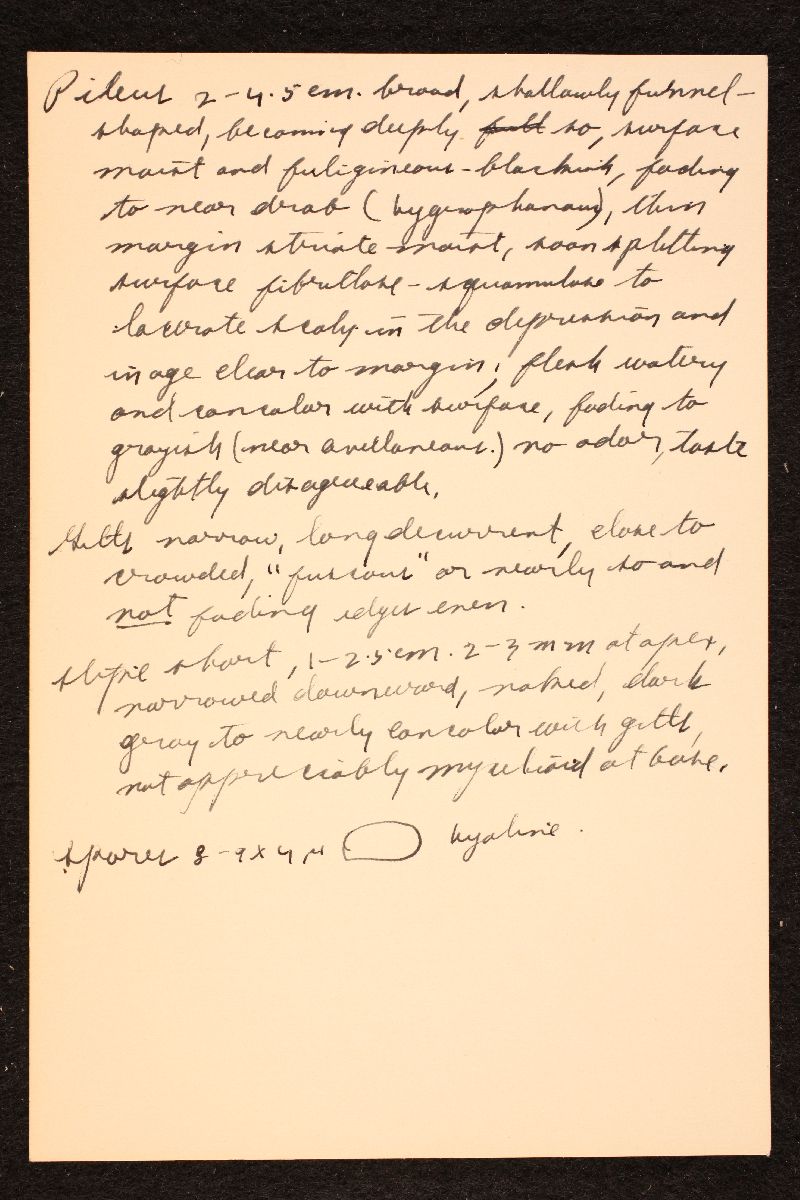 Pileus 2-4.5 cm. broad, shallowly funnel-
shaped, becoming deeply so, surface
moist and fuligineous-blackish, fading
to near drab (hygrophanous), thin
margin striate moist, soon splitting
surface fibrillose-squamulose to
lacerate scaly in the depression and
in age clear to margin; flesh watery
and concolor with surface, fading to
grayish (near avellaneous.) no odor, taste
slightly disagreeable.
Gills narrow, long decurrent, close to
crowded, "fuscous" or nearly so and
not fading edges even.
Stipe short, 1-2.5 cm. 2-3 mm at apex,
narrowed downward, naked, dark
gray to nearly concolor with gills,
not appreciably mycelioid at base.
Spores 8-9 x 4 µ hyaline.